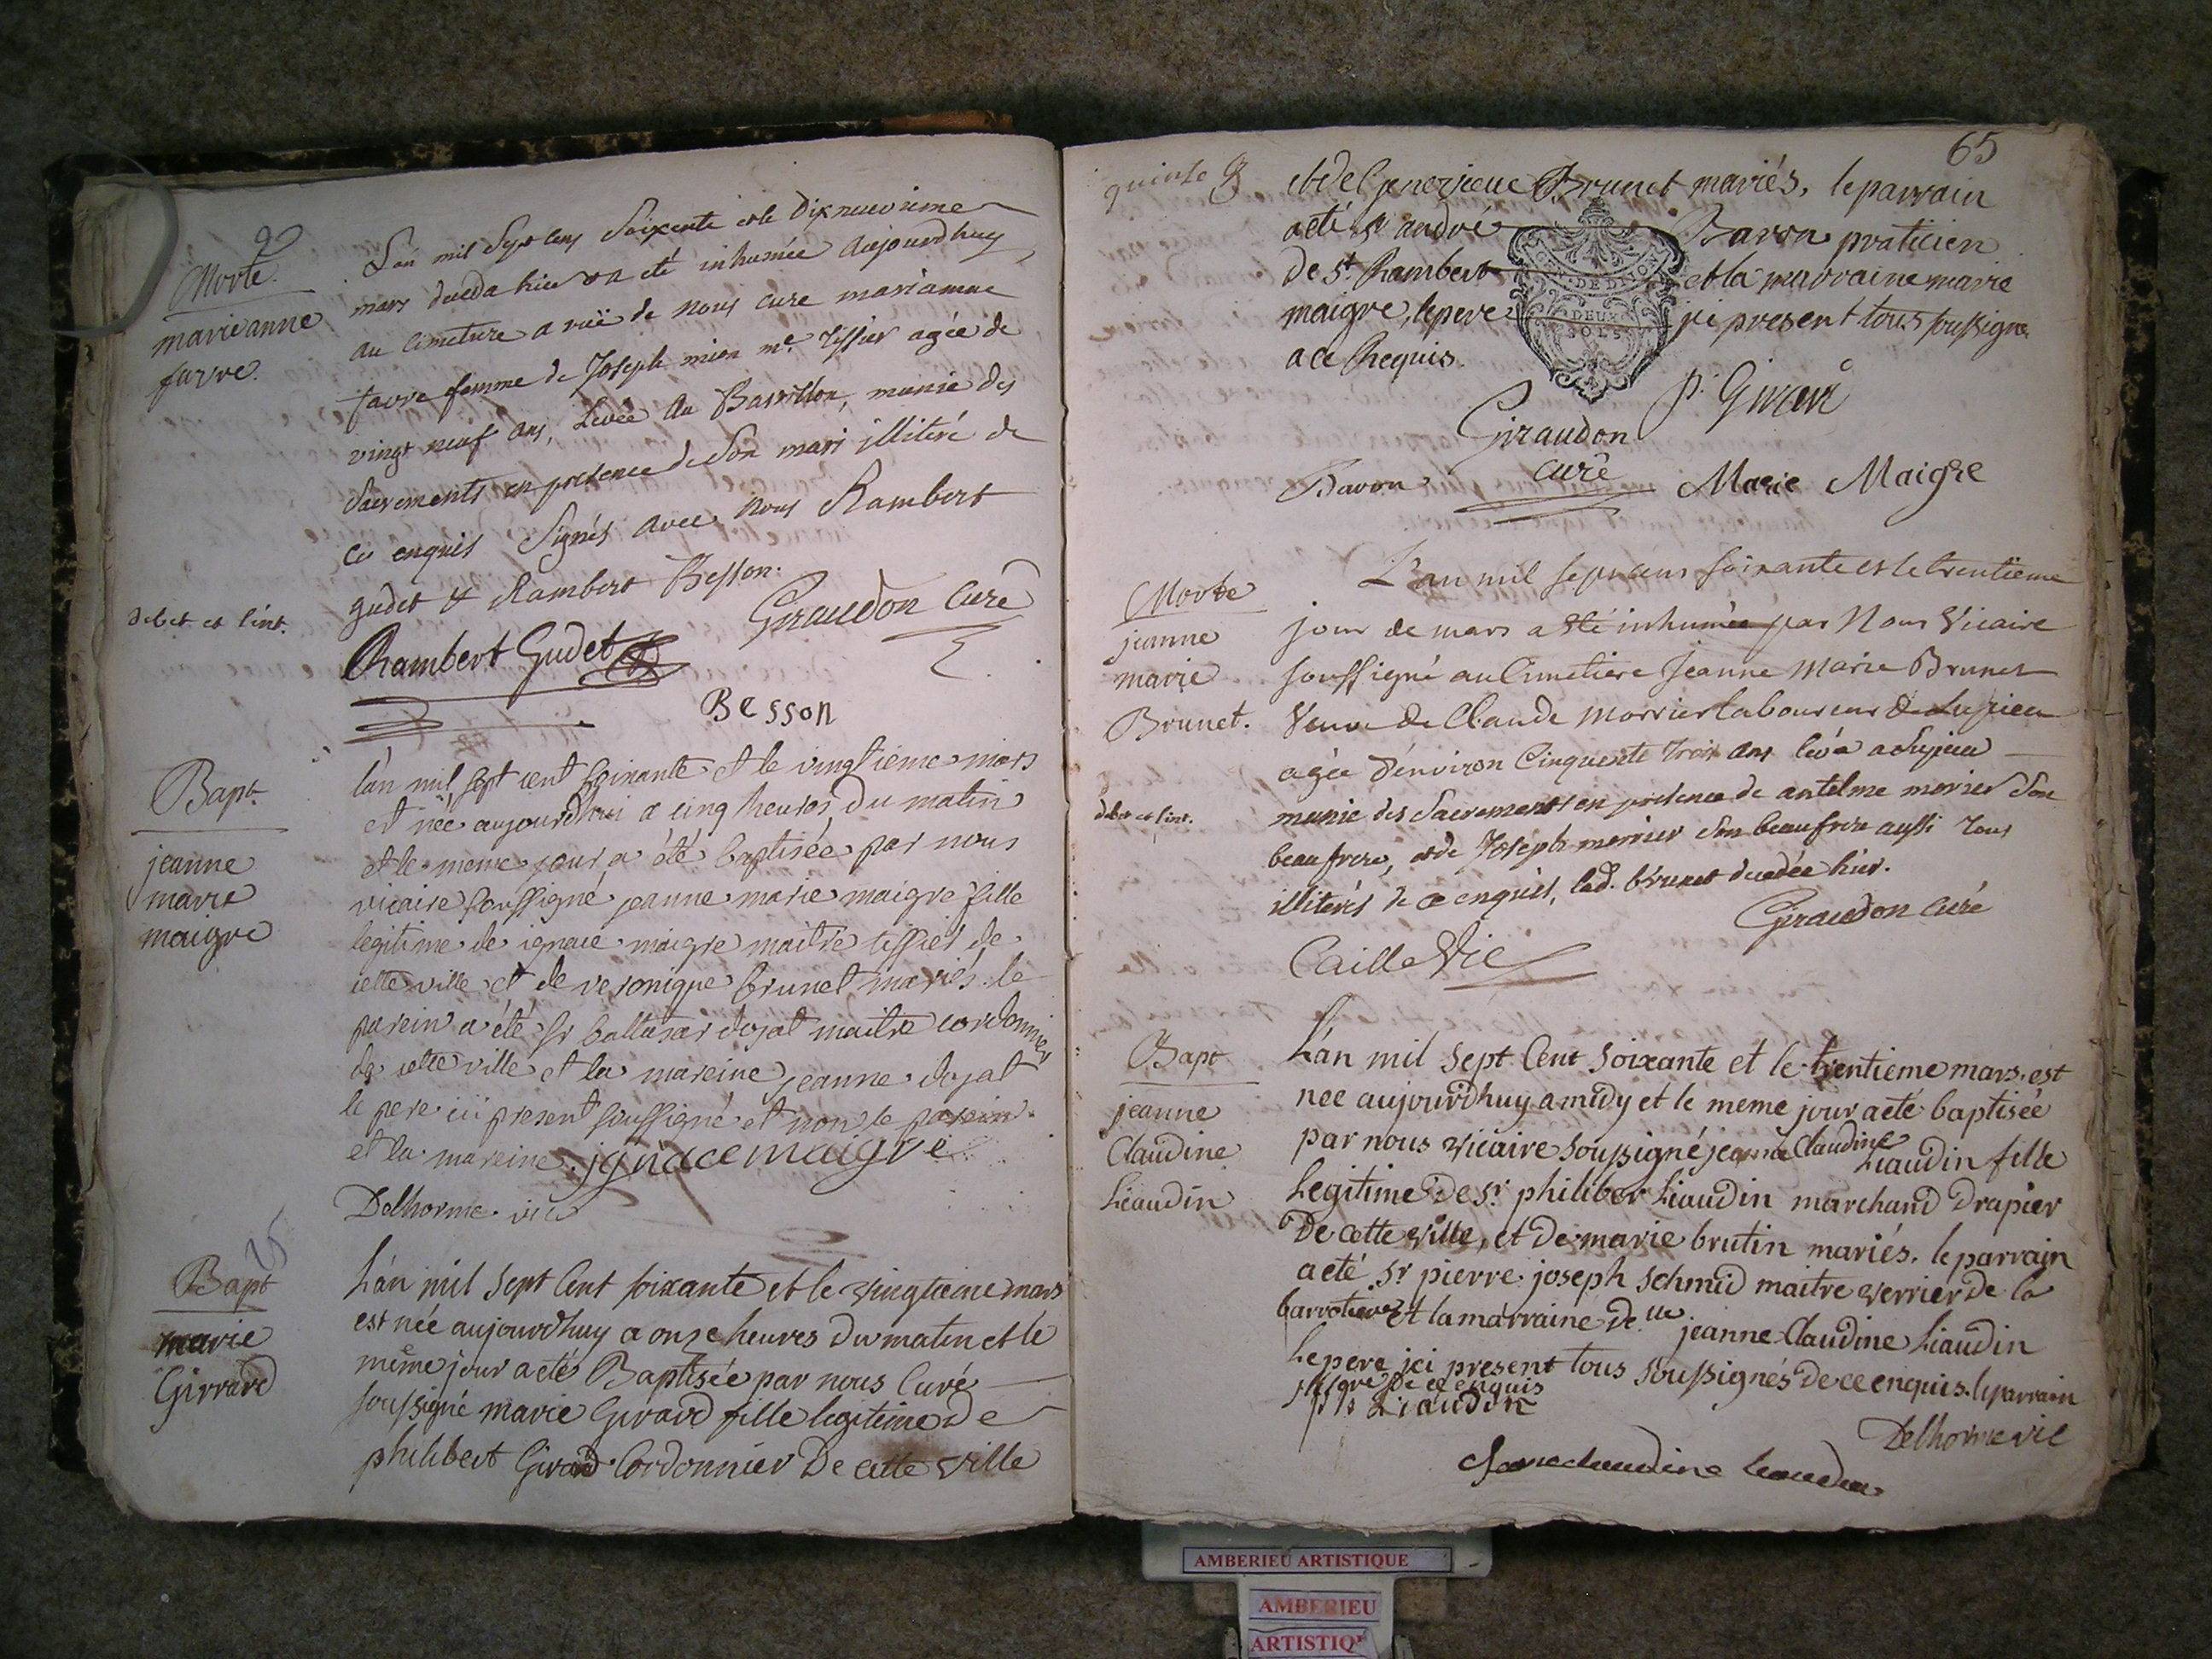 Morte
marie anne
favre.
L'an mil sept cens soixente et le dixneuvieme
mars deceda hier et a eté inhumée aujourdhuy
au cimetiere a nous cure mariamne
favre femme de Joseph mien me. Tissier agée de
vingt neuf ans, Levée au Basillon, munie des
sacrements en presence de son mari illiteré de
ce enquis signés avec nous Rambert
gudet & Rambert Besson.
debet et l'int.
Giraudon curé
Rambert Gudet
Besson
Bapt
jeanne
marie
maigre
l'an mil sept cent soixante et le vingtieme mars
et née aujourdhui a cinq heures du matin
et le meme jour a été baptisée par nous
vicaire soussigné jeanne marie maigre fille
legitime de ignace maigre maitre tissier de
cette ville et de veronique brunet mariés le
parein a été sr baltasar dojat maitre cordonnier
de cette ville et la mareine jeanne dojat
le pere ici present soussigné et non le parein
et la mareine. jgnace maigre
Delhorme vic
Bapt
marie
Girrard
L'an mil sept Cent soixante et le vingtieme mars
est née aujourdhuy a onze heures du matin et le
même jour a eté Baptisée par nous Curé
soussigné marie Girard fille legitime de
philibert Girard Cordonnier De cette ville
65
quinte
et de genevieve Brunet mariés, le parrain
a eté sr andré Baron praticien
de St. Rambert et la marraine marie
maigre, le pere ici present tous soussignes
a ce Requis.
GEN. DE DIJON
DEUX
SOLS
P. Girard
Giraudon
curé
Baron
Marie Maigre
Morte
jeanne
marie
Brunet.
L'an mil sept cens soixante et le trentieme
jour de mars a eté inhumée par Nous Vicaire
soussigné au Cimetiere Jeanne Marie Brunet
Veuve de Claude Morrier laboureur de Lupieu
agée d'environ Cinquente trois ans levée a Lupieu
debet et l'int.
munie des sacrements en presence de antelme morier son
beaufrere, et de Joseph morrier son beaufrere aussi tous
illiterés de ce enquis, lad. brunet decedée hier.
Giraudon curé
Caille Vic
Bapt
jeanne
Claudine
Liaudin
L'an mil sept Cent soixante et le trentieme mars. est
née aujourdhuy a midy et le meme jour a eté baptisée
par nous vicaire soussigné jeanne Claudine Liaudin fille
Legitime de Sr. philiber Liaudin marchand drapier
De cette ville, et De marie brutin mariés. le parrain
a eté Sr pierre joseph schmid maitre verrier De la
et la marraine De.lle jeanne Claudine Liaudin
Le pere ici present tous soussignés De ce enquis. le parrain
De ce enquis
Liaudin
Delhorme vic
Jeane claudine Liaudin
AMBERIEU ARTISTIQUE
AMBERIEU
ARTISTIQ